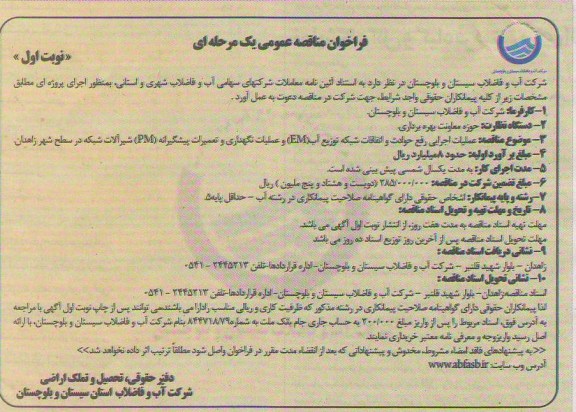 فراخوان مناقصه عمومی یک مرحله ای
«نوبت اول»
شرکت آب و فاضلاب سیستان و بلوچستان در نظر دارد به استناد آئین نامه معاملات شرکتهای سهامی آب و فاضلاب شهری و استانی، بمنظور اجرای پروژه ای مطابق
مشخصات زیر از کلیه پیمانکاران حقوقی واجد شرایط، جهت شرکت در مناقصه دعوت به عمل آورد.
۱-کارفرما: شرکت آب و فاضلاب سیستان و بلوچستان.
۲- دستگاه نظارت: حوزه معاونت بهره برداری.
۳- موضوع مناقصه: عملیات اجرایی رفع حوادث و اتفاقات شبکه توزیع آب(EM) و عملیات نگهداری و تعمیرات پیشگیرانه (PM) شیرآلات شبکه در سطح شهر زاهدان
۴- مبلغ برآورد اولیه: حدود ۸میلیارد ریال
۵- مدت اجرای کار: به مدت یکسال شمسی پیش بینی شده است.
۶- مبلغ تضمین شرکت در مناقصه: ۲۸۵/۰۰۰/۰۰۰ (دویست و هشتاد و پنج ملیون) ریال
۷- رشته و پایه پیمانکار: اشخاص حقوقی دارای گواهینامه صلاحیت پیمانکاری در رشته آب – حداقل پایه۵.
۸- تاریخ و مهلت تهیه و تحویل اسناد مناقصه:
مهلت تهیه اسناد مناقصه به مدت هفت روز، از انتشار نوبت اول آگهی می باشد.
مهلت تحویل اسناد مناقصه پس از آخرین روز توزیع اسناد ده روز می باشد.
۹- نشانی دریافت اسناد مناقصه:
زاهدان – بلوار شهید قلنبر – شرکت آب و فاضلاب سیستان و بلوچستان-اداره قراردادها-تلفن ۲۴۴۵۲۱۳ – ۰۵۴۱
۱۰- نشانی تحویل اسناد مناقصه:
اسناد مناقصه زاهدان- بلوار شهید قلنبر – شرکت آب و فاضلاب سیستان و بلوچستان- اداره قراردادها-تلفن ۲۴۴۵۲۱۳ – ۰۵۴۱
لذا پیمانکاران حقوقی دارای گواهینامه صلاحیت پیمانکاری در رشته مذکور که ظرفیت کاری و ریالی مناسب رادارا می باشندمی توانند پس از چاپ نوبت اول آگهی با مراجعه
به آدرس فوق، اسناد مربوط را پس از واریز مبلغ ۲۰۰/۰۰۰ به حساب جاری جام بانک ملت به شماره۸۴۴۷۱۸/۷۹ بنام شرکت آب و فاضلاب سیستان و بلوچستان، با ارائه
اصل رسید واریزوجه و معرفی نامه معتبر خریداری نمایند.
<<به پیشنهادهای فاقد امضاء مشروط، مخدوش و پیشنهاداتی که بعد از انقضاء مدت مقرر در فراخوان واصل شود مطلقاً ترتیب اثر داده نخواهد شد>>
آدرس وب سایت: www.abfasb.ir
دفتر حقوقی، تحصیل و تملک اراضی
شرکت آب و فاضلاب استان سیستان و بلوچستان